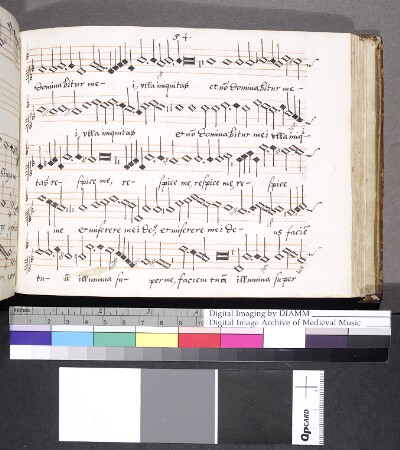 54.
dominabitur me- i, vlla iniquitas et nō dominabitur me-
i, vlla iniquitas et nō dominabitur mei vlla iniq-
tas re- spice me, re- spice me, respice me, re- spice
me et miserere mei de⁹, et miserere mei de- us faciē
tu- ā illumina su- per me, faciem tuā illumina super
inches 1 2 3
Digital Imaging by DIAMM
Digital Image Archive of Medieval Music
cm 1 2 3 4 5 6 7 8 9 10
QPCARD